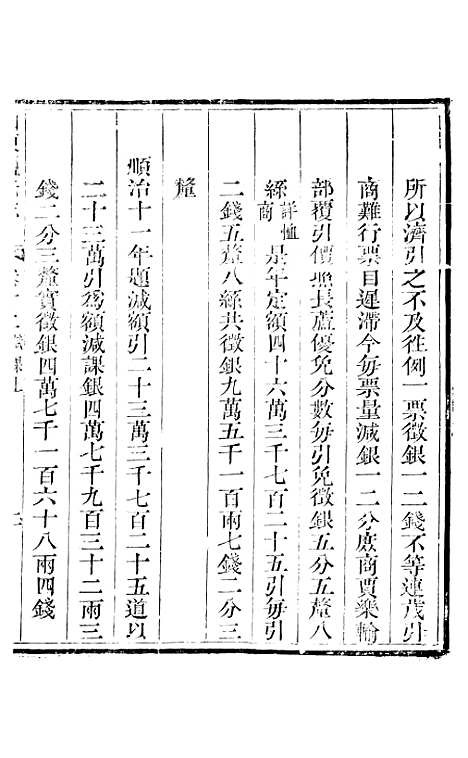 所以濟引之不及徃例一票徵銀一二錢不等連茂引
商難行票目遲滯今每票量减銀一二分庶商賈樂輸
部覆引價照長蘆優免分數每引免徵銀五分五釐八
絲詳恤商是年定額四十六萬三千七百二十五引每引
二錢五釐八絲共徵銀九萬五千一百兩七錢二分三
釐
順治十一年題減額引二十三萬三千七百二十五道以
二十三萬引爲額減課銀四萬七千九百三十二兩三
錢二分三釐實徵銀四萬七千一百六十八兩四錢